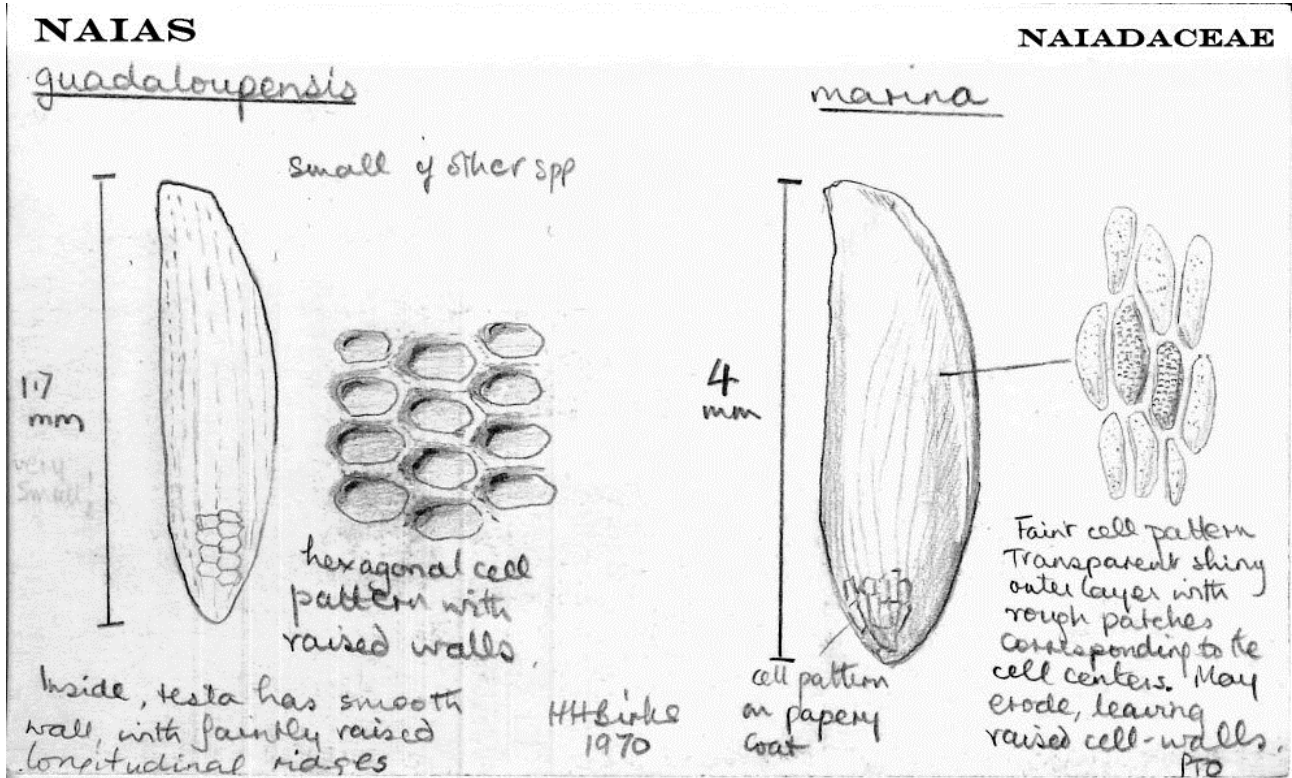 NAIAS
NAIADACEAE
guadaloupensis
small cf other spp
1.7
mm
very
small!
hexagonal cell
pattern with
raised walls.
Inside, testa has smooth
wall, with faintly raised
longitudinal ridges
HHBirks
1970
marina
4
mm
cell pattern
on papery
coat
Faint cell pattern
Transparent shiny
outer layer with
rough patches
corresponding to the
cell centers. May
erode, leaving
raised cell-walls.
PTO